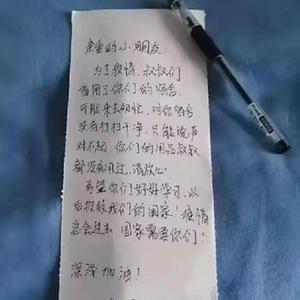 亲爱的小朋友
为了疫情，叔叔们
借用了你们的宿舍
可能来去匆忙，对你宿舍
没有打扫干净，只能说声
对不起，你们的用品叔叔
都没有用过，请放心
希望你们好好学习，以
后报效我们的国家！疫情
总会过去 国家需要你们！
深泽加油！